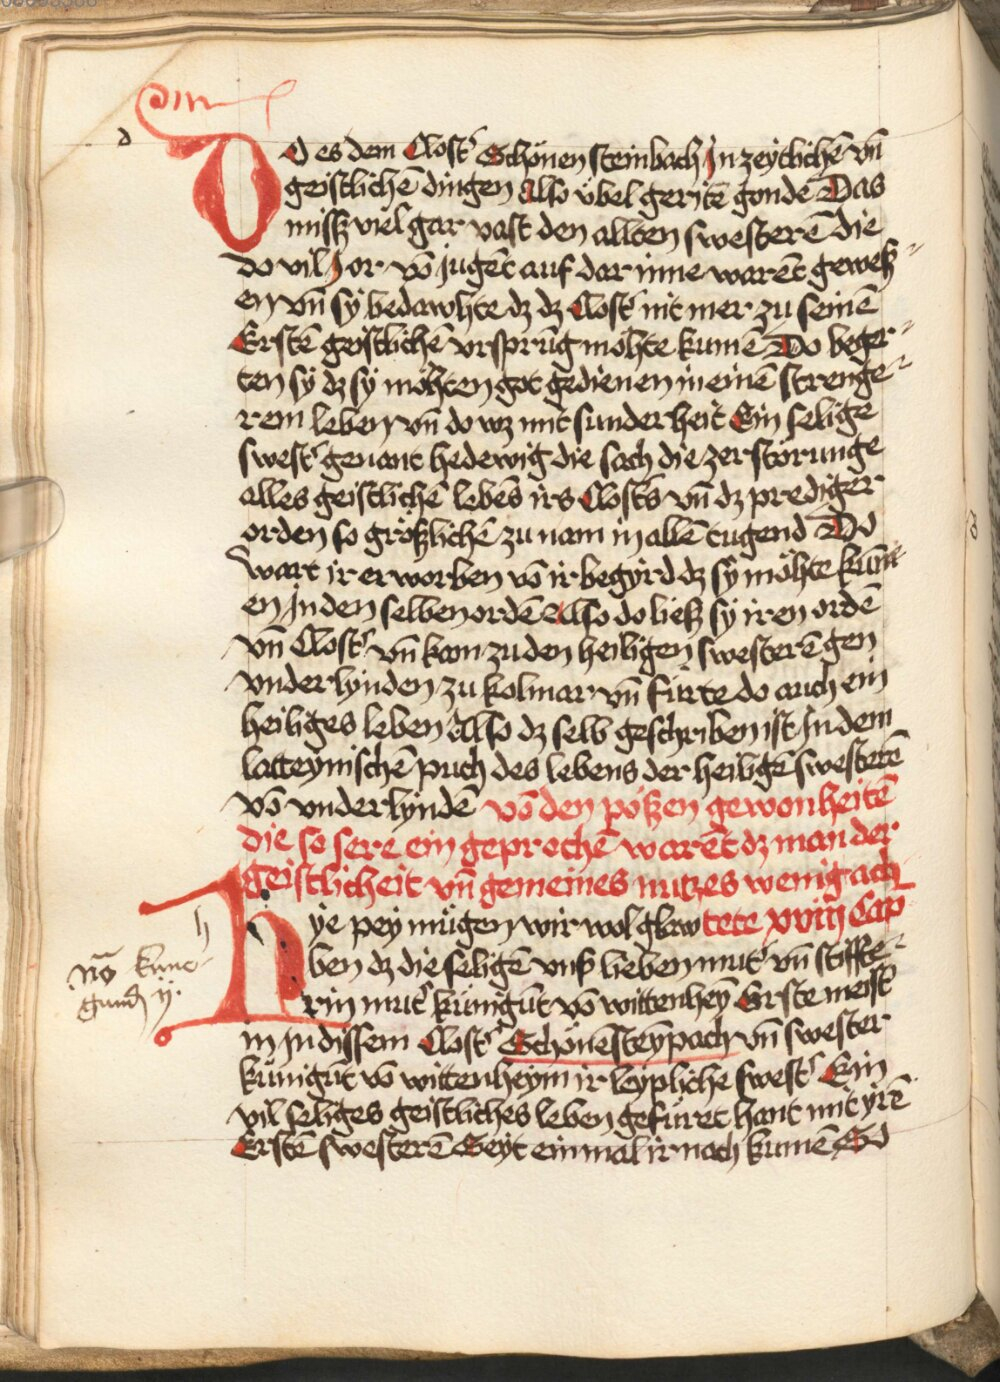 d
DO es dem Closť Schönen steinbach Jn zeytlichē vn̄
geistlichē dingen also übel geritē gondē Das
missz viel gar vast den allten swesterē die
do vil Jor vō jugēt auf dar inne warēt gewesz
en vn̄ sy bedawhte dz dz Closť nit mer zu seinē
Erstē geistlichē vrsprūg möhte kumē Do beger
ten sy dz sy möhten got gedienen in einē strenge
rem leben vn̄ do wz mit sunderheit Ein selige
swesť genant hedewig die sach die zerstörunge
alles geistlichē lebēs irs Closťs vn̄ dz prediger
orden so gröszlichē zu nam in allē tugend Do
wart ir erworben vō ir begyrd dz sy möhte kūm
en Jn den selben ordē Also do liesz sy iren ordē
vn̄ Closť vn̄ kam zu den heiligen swesterē gen
vnderlynden zu kolmar vn̄ fürte do auch ein
heiliges leben Also dz selb geschriben ist Jn dem
latteynischē puch des lebens der heiligē swesterē
vō vnderlyndē vō den pöszen gewonheitē
die so sere ein geprechē warēt dz man der
geistlicheit vn̄ gemeines nutzes wenig ach
HJe pey mügen wir wol glaw tete xviij Cap
ben dz die seligē vnsz lieben muť vn̄ stiffte
rin muť künigūt vō wittenheȳ Erste meist
in Jn dissem Closť Schönesteȳpach vn̄ swester
künigūt vō wittenheym ir leypliche swesť Ein
vil seliges geistliches leben gefüret hant mit yrē
Erstē swesterē Seyt ein mal ir nach kumē So
h
nō kune
gund ij.